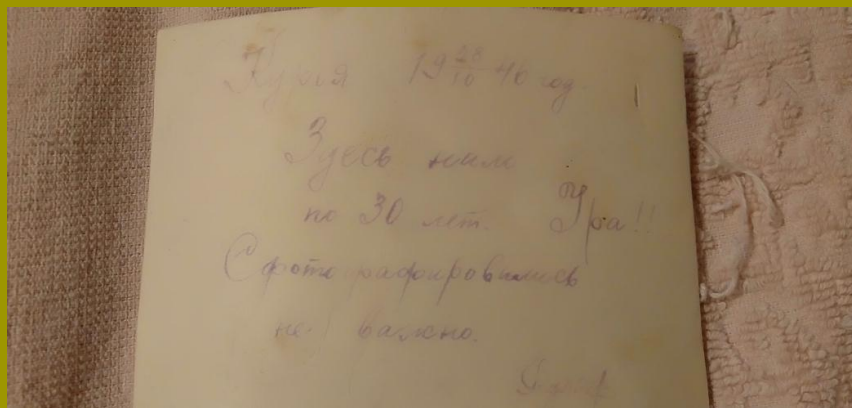 19 28/10 46 год
Здесь нам
по 30 лет. Ура!!
Сфотографировались
не важно.